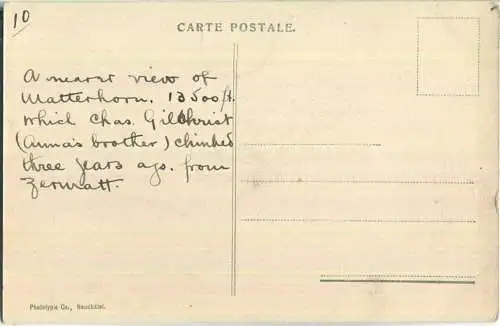 10
CARTE POSTALE.
A nearer view of
Matterhorn. 13500 ft.
which Chas. Gilchrist
(Anna's brother) climbed
three years ago. from
Zermatt.
Phototypie Co., Neuchâtel.